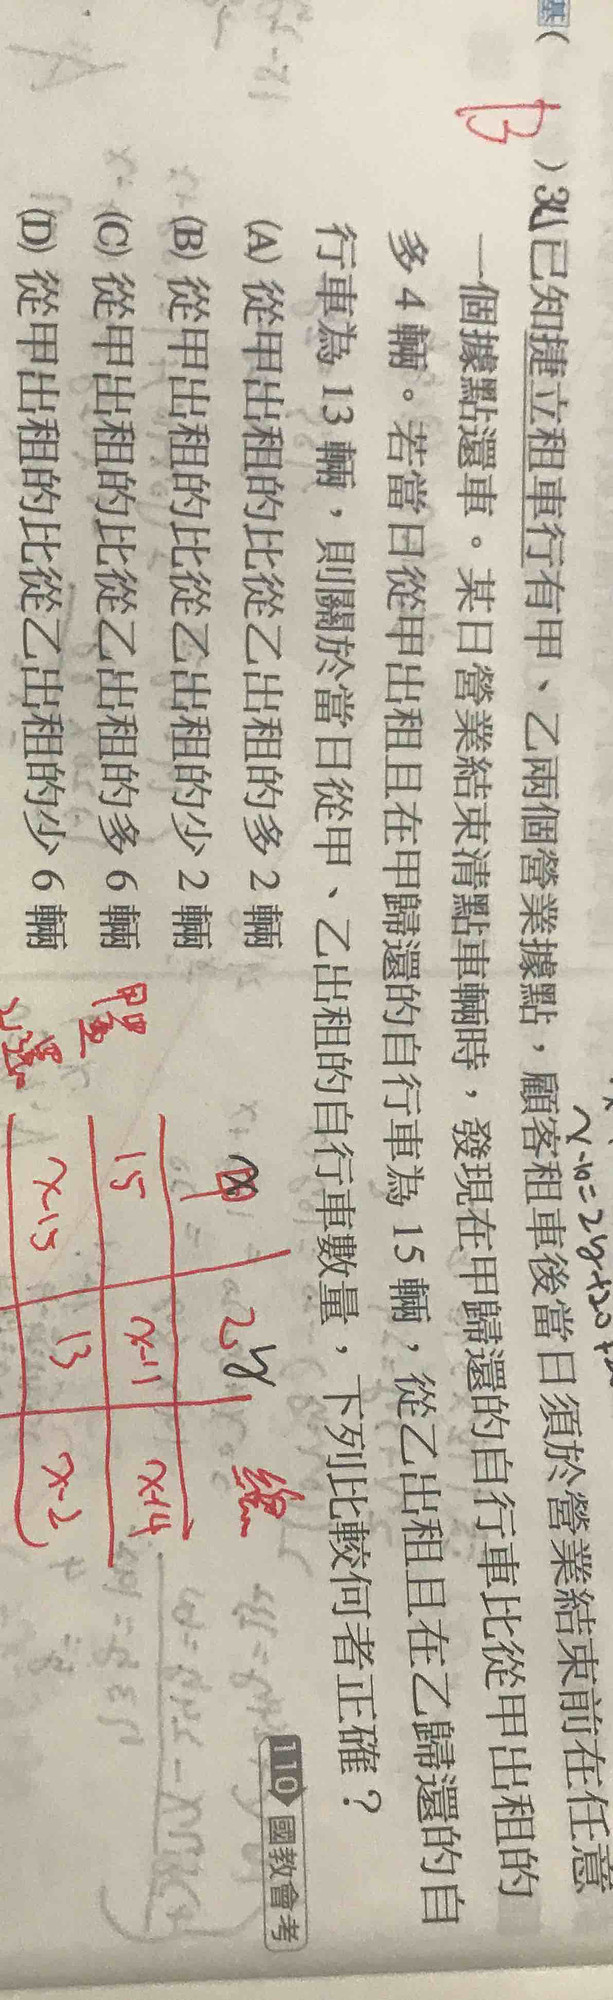 基( B )31.已知捷立租車行有甲、乙兩個營業據點，顧客租車後當日須於營業結束前在任意
一個據點還車。某日營業結束清點車輛時，發現在甲歸還的自行車比從甲出租的
多 4 輛。若當日從甲出租且在甲歸還的自行車為 15 輛，從乙出租且在乙歸還的自
行車為 13 輛，則關於當日從甲、乙出租的自行車數量，下列比較何者正確？
110 國教會考
(A) 從甲出租的比從乙出租的多 2 輛
(B) 從甲出租的比從乙出租的少 2 輛
(C) 從甲出租的比從乙出租的多 6 輛
(D) 從甲出租的比從乙出租的少 6 輛
x-10=2y+20
x 乙y 總
甲還 15 x-11 x+4
乙還 x-15 13 x-2